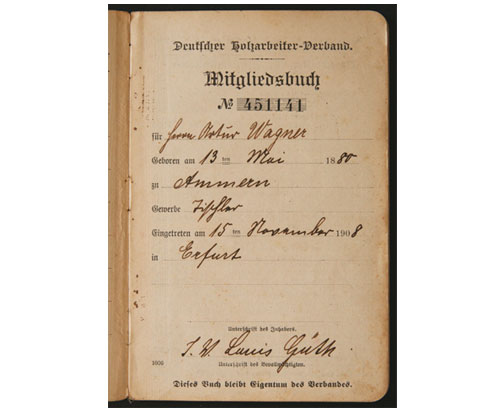 Deutscher Holzarbeiter-Verband.
Mitgliedsbuch
№ 451141
für Herrn Artur Wagner
Geboren am 13ten Mai 1880
zu Ammern
Gewerbe Tischler
Eingetreten am 15ten November 1908
in Erfurt
Unterschrift des Inhabers.
J. V. Louis Güth
Unterschrift des Bevollmächtigten.
Dieses Buch bleibt Eigentum des Verbandes.